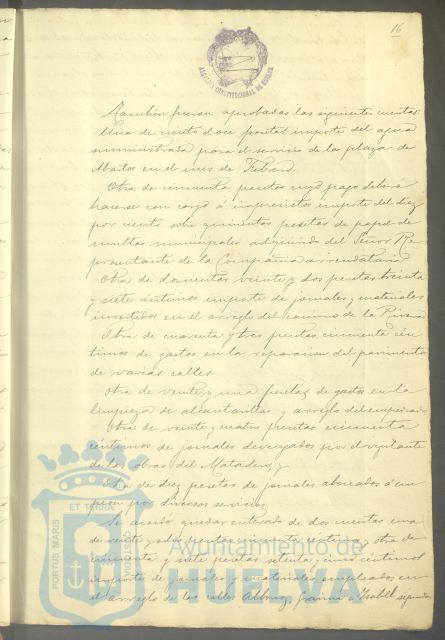 16
ALCALDIA CONSTITUCIONAL DE HUELVA
Tambien fueron aprobadas las siguientes cuentas:
Una de ciento doce pesetas importe del agua
suministrada para el servicio de la plaza de
Abastos en el mes de Febrero.
Otra de cincuenta pesetas cuyo pago deberá
hacerse con cargo á imprevistos importe del diez
por ciento sobre quinientas pesetas de papel de
multas municipales adquirido del Señor Re-
presentante de la Compañia arrendataria
Otra de doscientas veinte y dos pesetas treinta
y siete céntimos importe de jornales y materiales
invertidos en el arreglo del camino de la Rivera
Otra de cuarenta y tres pesetas cincuenta cén
timos de gastos en la reparacion del pavimento
de varias calles.
Otra de veinte y una pesetas de gastos en la
limpieza de alcantarillas y arreglo del empedrado
Otra de veinte y cuatro pesetas cincuenta
céntimos de jornales devengados por el vigilante
de las obras del Matadero, y
Otra de diez pesetas de jornales abonados á un
peon por diversos servicios.
Se acordó quedar enterado de dos cuentas una
de veinte y dos pesetas cincuenta céntimos y otra de
cincuenta y siete pesetas setenta y cinco céntimos
importe de jornales y materiales empleados en
el arreglo de las calles Alonso é Isabel segunda
PORTUS MARIS
ET TERRAE
Ayuntamiento de
HUELVA